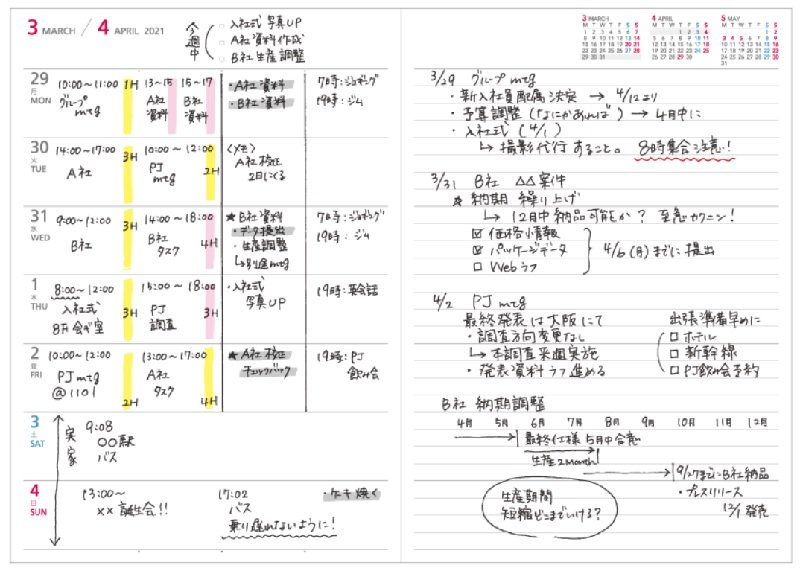 3 MARCH / 4 APRIL 2021
今週中
□ 入社式 写真UP
□ A社資料作成
□ B社 生産調整
29 月 MON
10:00～11:00 1H
グループ mtg
13～15
A社 資料
15～17
B社 資料
・A社 資料
・B社 資料
7時：ジョギング
19時：ジム
30 火 TUE
14:00～17:00 3H
A社
10:00～12:00 2H
PJ mtg
〈メモ〉
A社 校正
2日にくる
31 水 WED
9:00～12:00 3H
B社
14:00～18:00 4H
B社 タスク
★ B社 資料
・データ提出
・生産調整
↳別途mtg
7時：ジョギング
19時：ジム
1 木 THU
8:00～12:00 3H
入社式
8F 会ギ室
15:00～18:00 3H
PJ 調査
・入社式
写真UP
19時：英会話
2 金 FRI
10:00～12:00 2H
PJ mtg
@1101
13:00～17:00 4H
A社 タスク
★ A社 校正
チェックバック
19時：PJ
飲み会
3 土 SAT
実家
9:08
○○駅
バス
4 日 SUN
13:00～
×× 誕生会!!
17:02
バス
乗り遅れないように！
・ケーキ焼く
3 MARCH
4 APRIL
5 MAY
3/29 グループ mtg
・新入社員配属決定 → 4/12より
・予算調整（なにかあれば） → 4月中に
・入社式（4/1）
↳ 撮影代行 すること。 8時集合注意！
3/31 B社 △△案件
★ 納期 繰り上げ
↳ 12月中 納品可能か？ 至急カクニン！
☑ 価格情報
☑ パッケージデータ
□ Webラフ
4/6（月）までに提出
4/2 PJ mtg
最終発表は大阪にて
・調査方向変更なし
↳ 本調査来週実施
・発表資料ラフ進める
出張準備早めに
□ ホテル
□ 新幹線
□ PJ飲み会予約
B社 納期調整
4月 5月 6月 7月 8月 9月 10月 11月 12月
最終仕様 5月中合意
生産2Month
9/27までにB社納品
・プレスリリース
12/1 発売
生産期間
短縮どこまでいける？